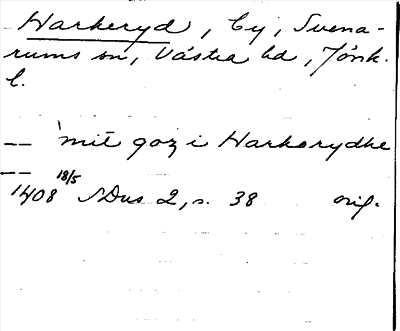 Harkeryd, by, Svena-
rums sn, Västra hd, Jönk.
l.
-- 'mit goz i Harkorydhe
--
1408 18/5 SDns 2, s. 38 orig.